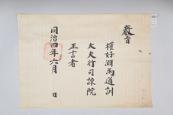 敎旨
權好淵為通訓
大夫行司諫院
正言者
同治四年六月 日